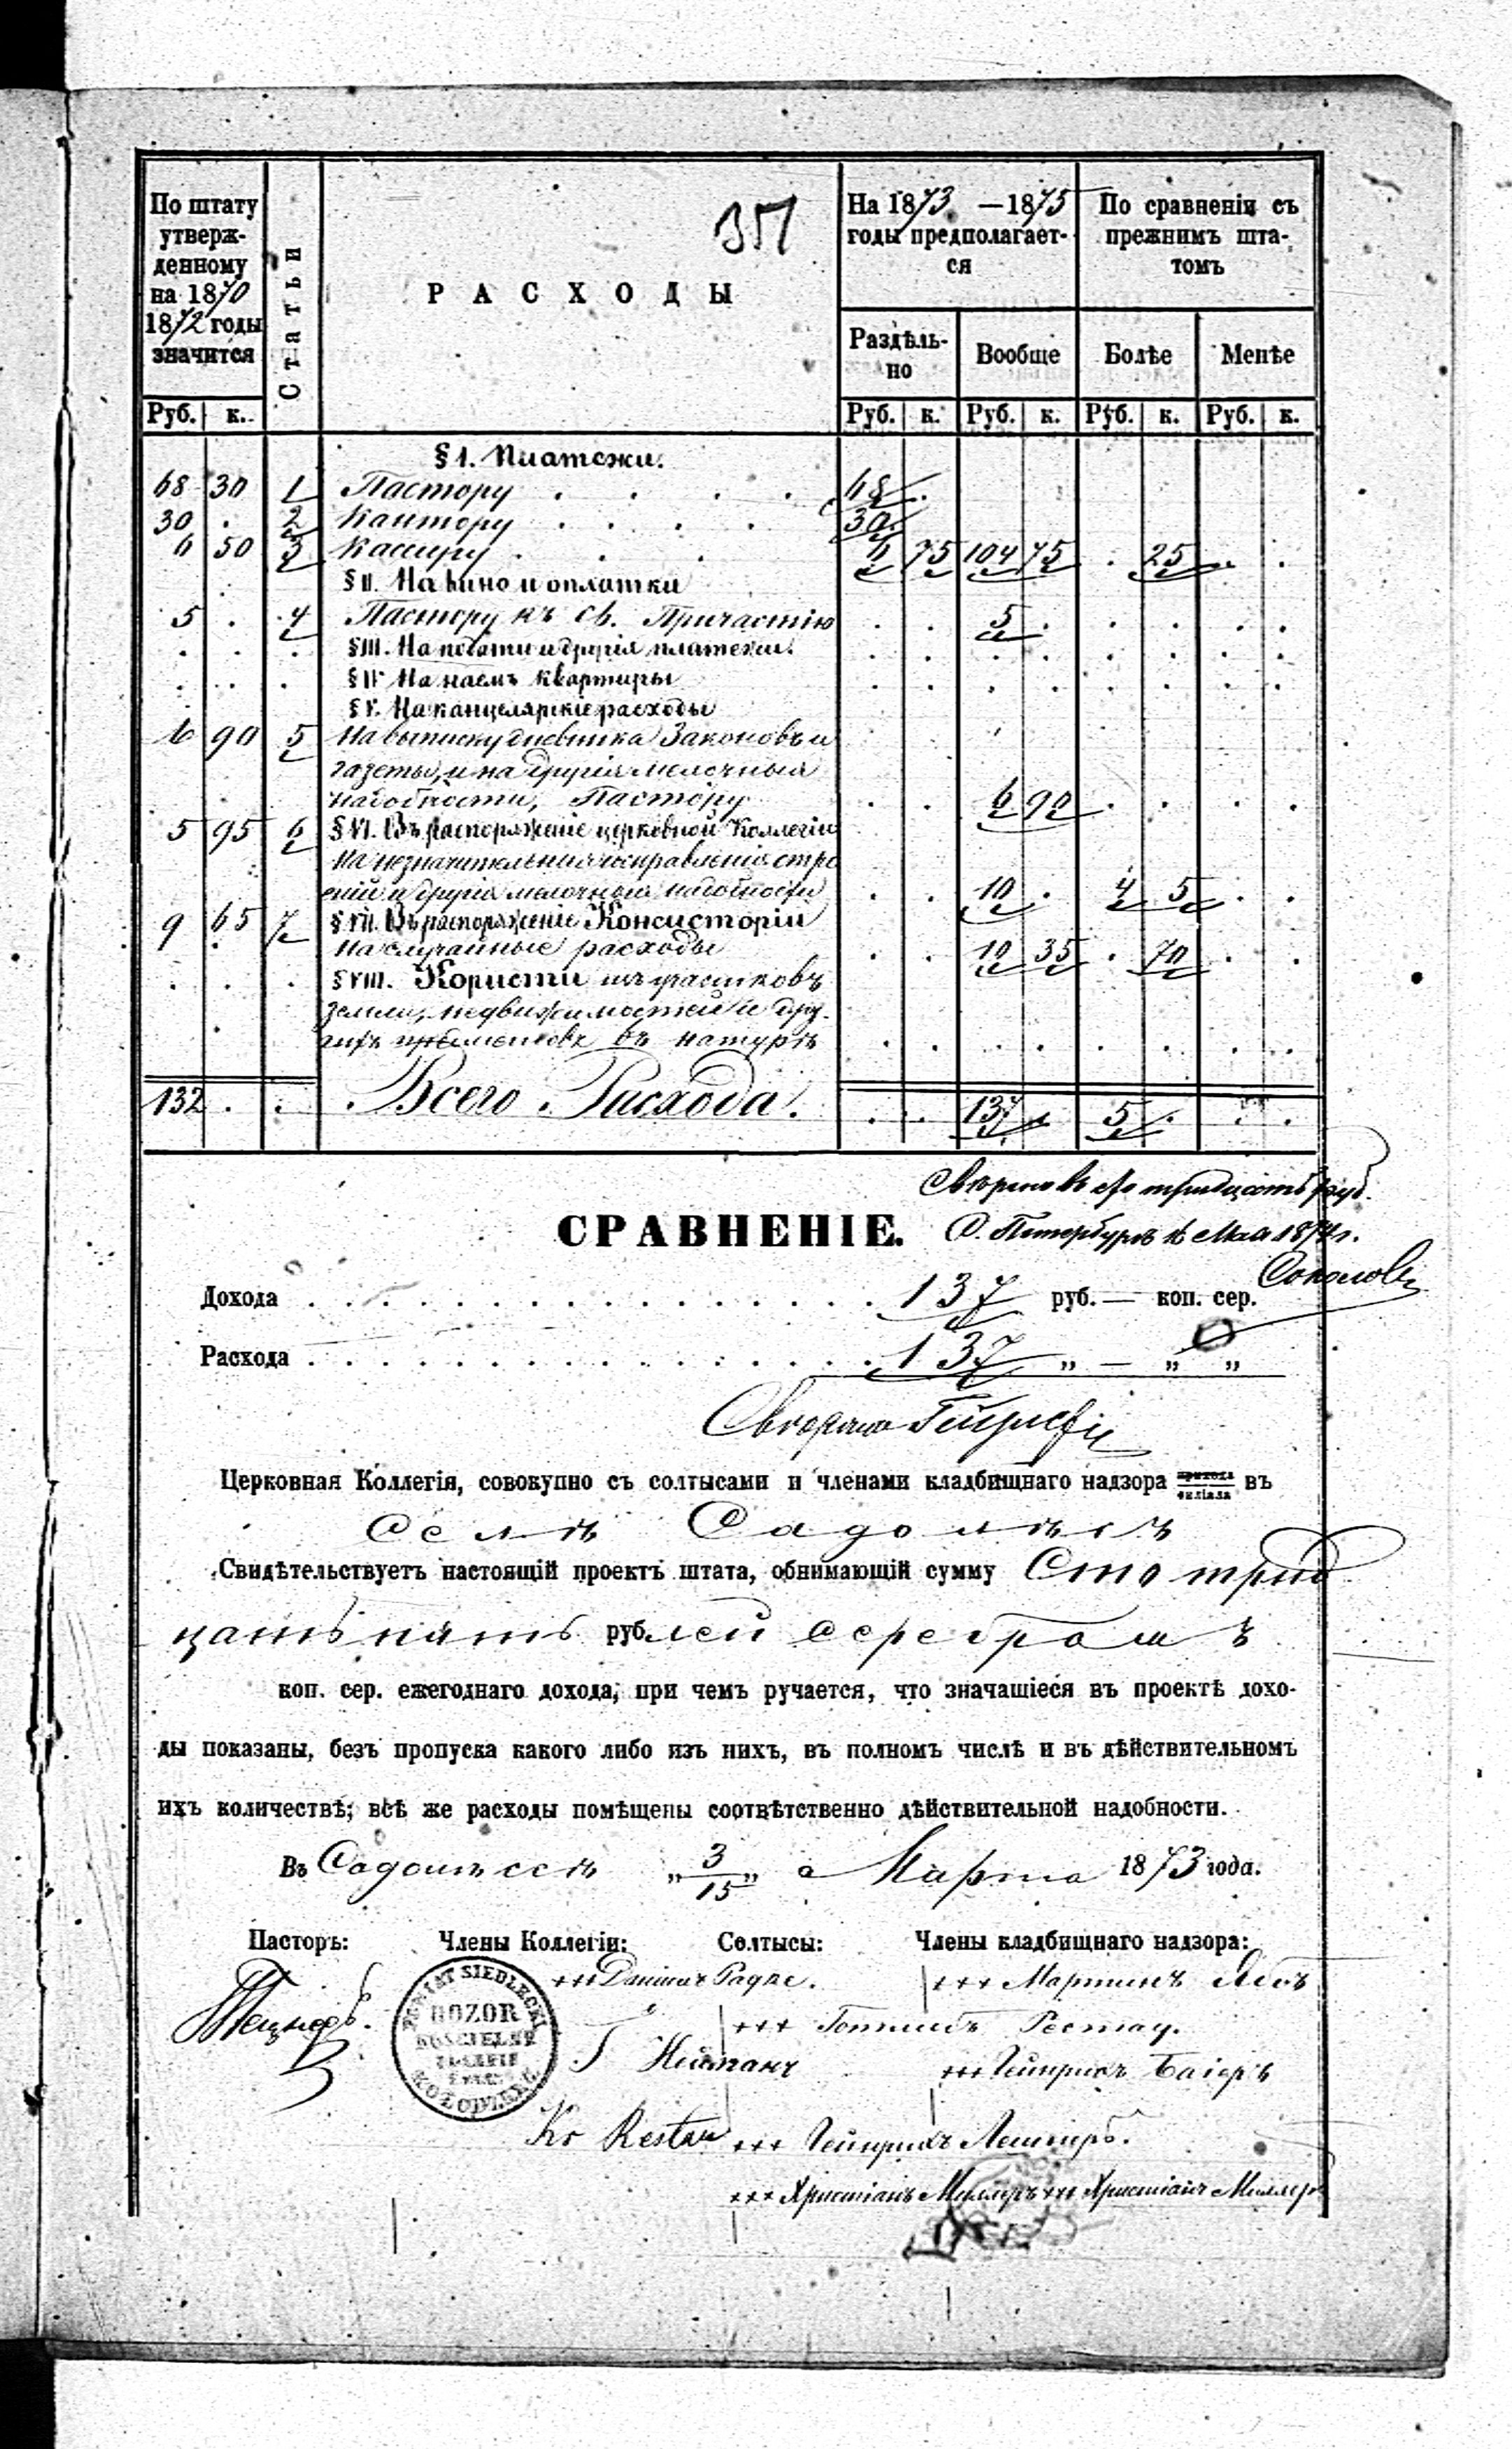 357
По штату утверж-денному на 1870 1872 годы значится
Статьи
РАСХОДЫ
На 1873 — 1875 годы предполагает-ся
По сравненія съ прежнимъ шта-томъ
Раздѣль-но
Вообще
Болѣе
Менѣе
Руб. к. Руб. к. Руб. к. Руб. к. Руб. к.
§ I. Платежи.
68 30 1 Пастору 68
30 . 2 Кантору 30
6 50 3 Кассиру 6 75 104 75 . 25
§ II. На вино и оплатки
5 . 4 Пастору къ св. Причастію 5 .
§ III. На подати и другія платежи.
§ IV На наемъ квартиры
§ V. На канцелярскіе расходы
6 90 5 На выписку дневника Законовъ и
газеты, и на другія мелочныя
надобности, Пастору 6 90
5 95 6 § VI. Въ распоряженіе церковной Коллегіи
На незначительныя исправленія стро
еній и другія мелочныя надобности 10 . 4 5
9 65 7 § VII. Въ распоряженіе Консисторіи
На случайные расходы 10 35 . 70
§ VIII. Користи изъ участковъ
земли, недвижимостей и дру-
гихъ въ натурѣ
132 . . Всего Расхода. 137 . 5 .
сто тридцать руб.
С. Петербургъ Мая 1874 г.
СРАВНЕНІЕ.
Соколовъ
Дохода 137 руб. — коп. сер.
Расхода 137 „ — „ „
Церковная Коллегія, совокупно съ солтысами и членами кладбищнаго надзора прихода филіала въ
Селѣ
Свидѣтельствуетъ настоящій проектъ штата, обнимающій сумму Сто трид
цать пять рублей серебромъ
коп. сер. ежегоднаго дохода; при чемъ ручается, что значащіеся въ проектѣ дохо-
ды показаны, безъ пропуска какого либо изъ нихъ, въ полномъ числѣ и въ дѣйствительномъ
ихъ количествѣ; всѣ же расходы помѣщены соотвѣтственно дѣйствительной надобности.
Въ „3/15„ Марта 1873 года.
Пасторъ: Члены Коллегіи: Солтысы: Члены кладбищнаго надзора:
POWIAT SIEDLECKI
DOZOR
KOŚCIELNY
+++ Радке. +++ Мартинъ
+++ Готлибъ Рестау.
Г Нейманъ +++ Гейнрихъ Баіеръ
Kr Restau +++ Гейнрихъ
+++ Христіанъ Миллеръ +++ Христіанъ Миллеръ